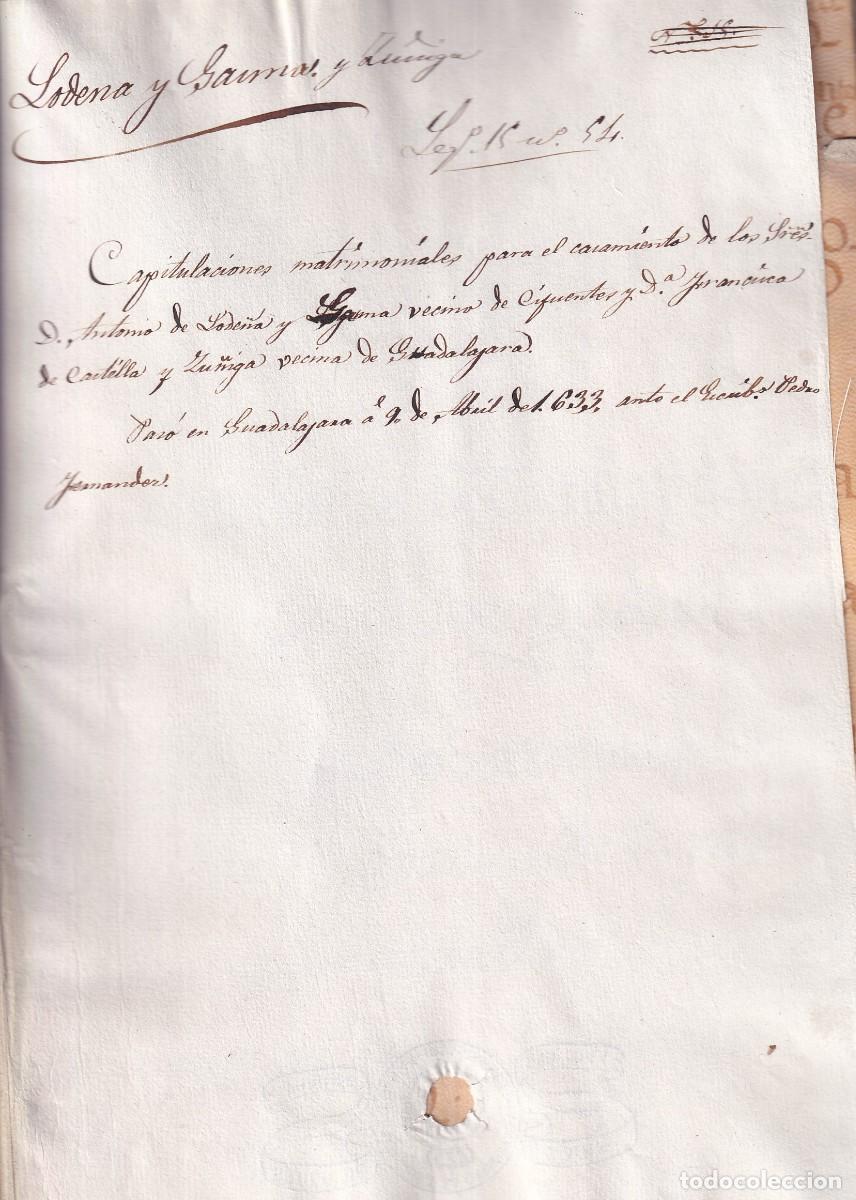 Lodena y Gauma. y Zuñiga
Leg.º 15 nº. 54.
Capitulaciones matrimoniales para el casamiento de los Sres.
D. Antonio de Lodeña y Gama vecino de Cifuentes y D.ª Francisca
de Castilla y Zuñiga vecina de Guadalajara.
Pasó en Guadalajara á 9. de Abril de 1.633, ante el Escrib.º Pedro
Fernandez.
todocoleccion